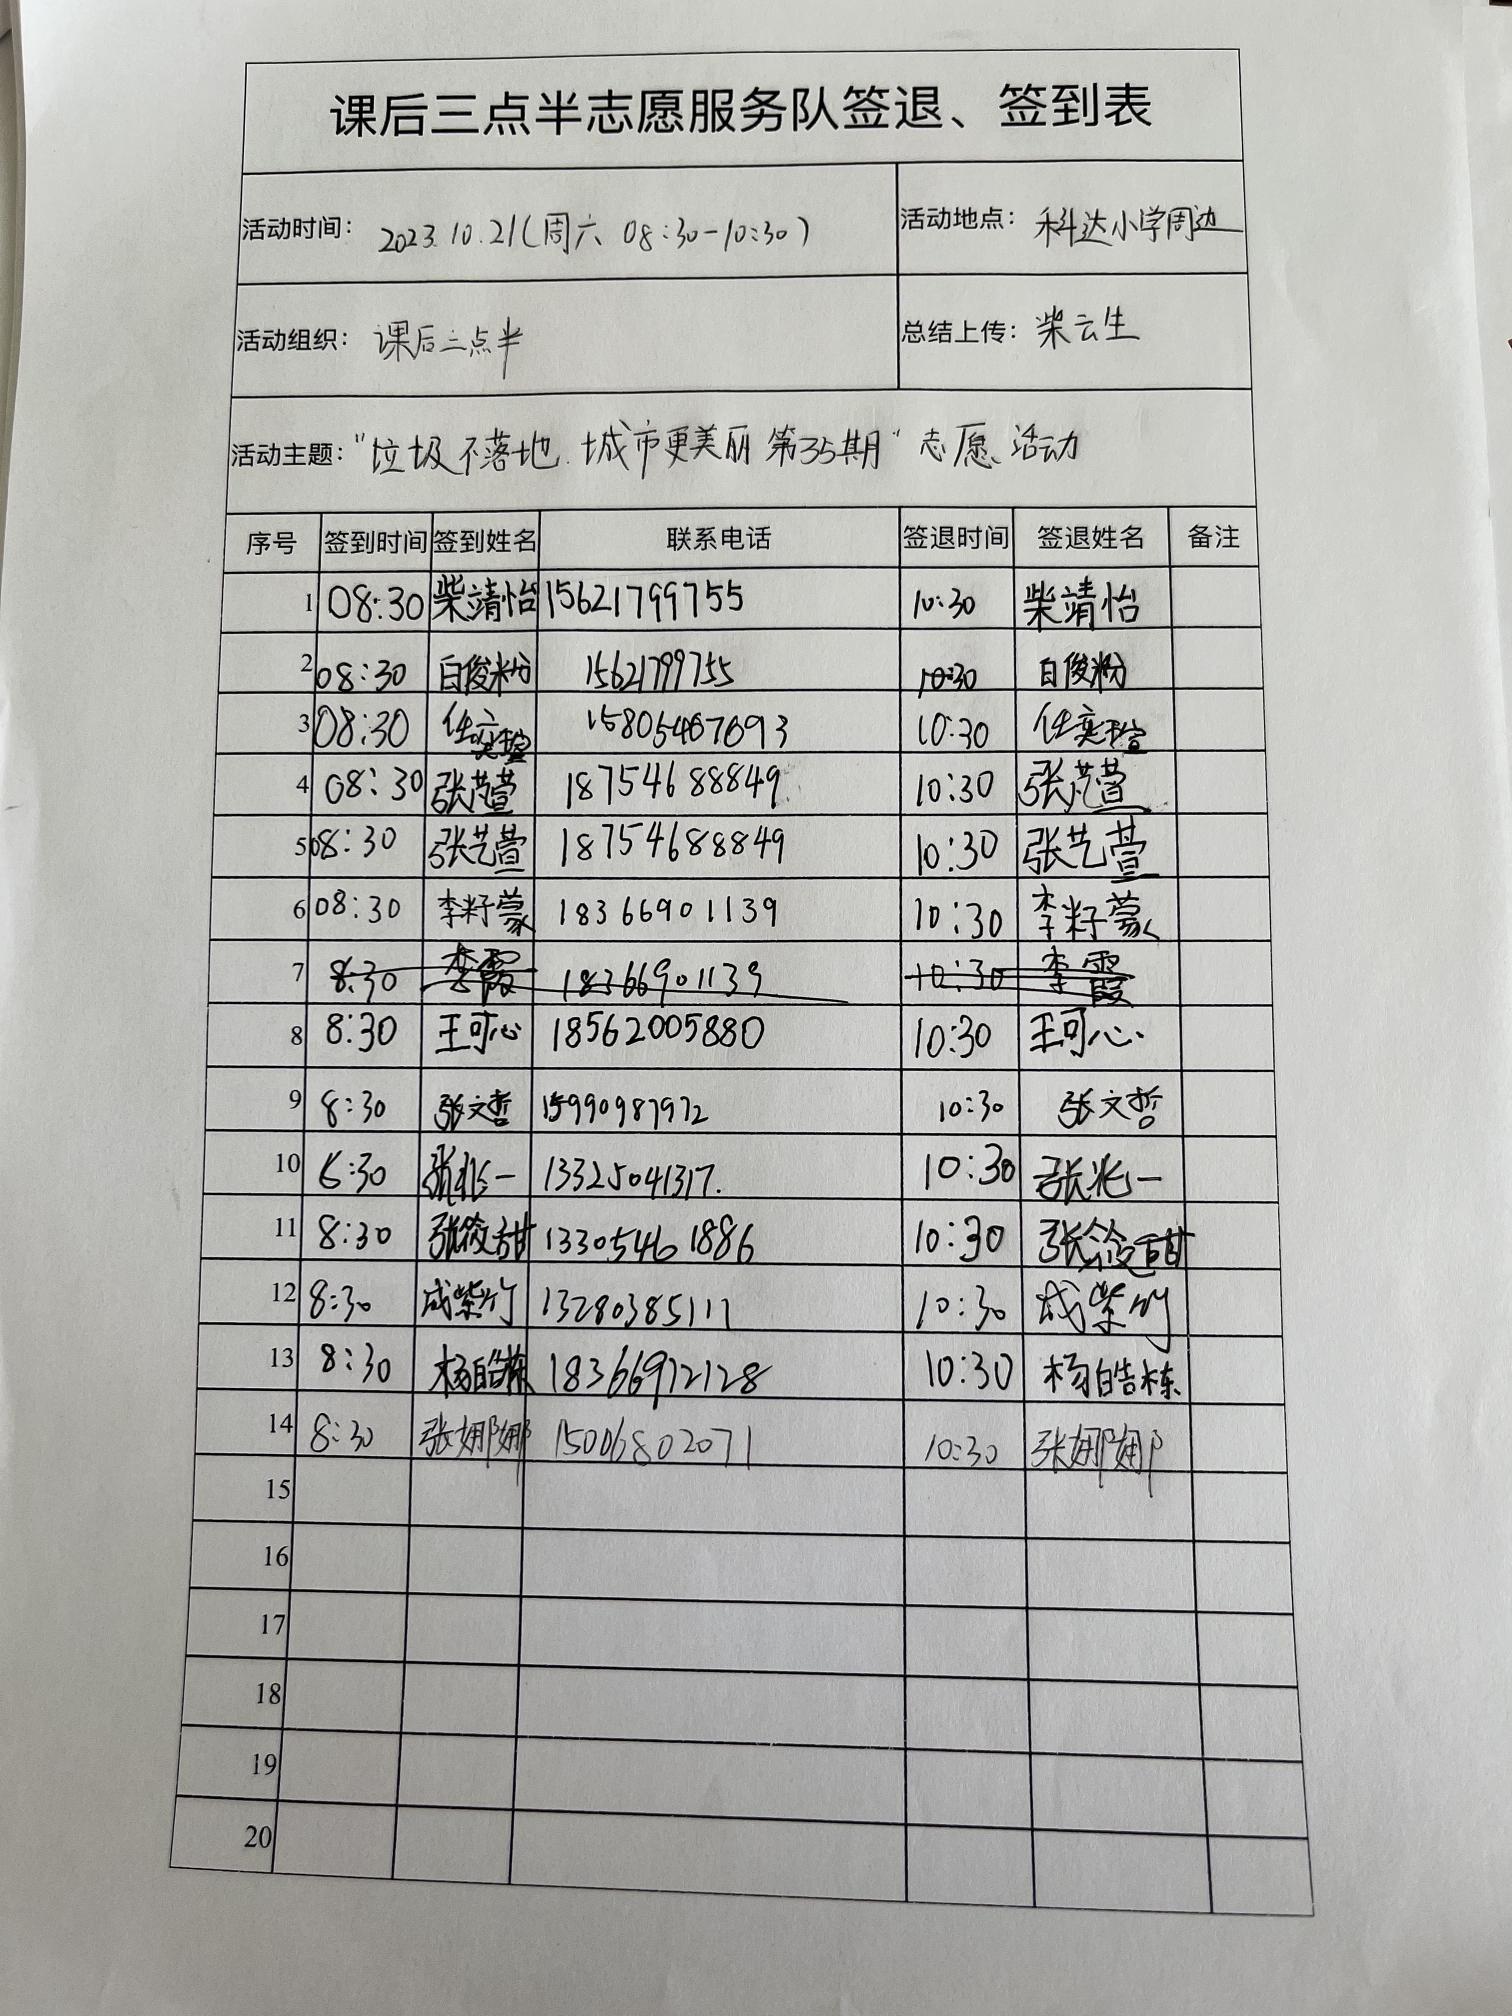 课后三点半志愿服务队签退、签到表
活动时间： 2023.10.21(周六 08:30-10:30) 活动地点： 科达小学周边
活动组织： 课后三点半 总结上传： 柴云生
活动主题： "垃圾不落地.城市更美丽 第35期" 志愿活动
序号 签到时间 签到姓名 联系电话 签退时间 签退姓名 备注
1 08:30 柴靖怡 15621799755 10:30 柴靖怡
2 08:30 白俊粉 15621799755 10:30 白俊粉
3 08:30 任奕瑄 15805467693 10:30 任奕瑄
4 08:30 张芃萱 18754688849 10:30 张芃萱
5 08:30 张艺萱 18754688849 10:30 张艺萱
6 08:30 李籽蒙 18366901139 10:30 李籽蒙
7 8:30 李霞 18366901139 10:30 李霞
8 8:30 王可心 18562005880 10:30 王可心
9 8:30 张文哲 15990987972 10:30 张文哲
10 :30 张兆一 13325041317. 10:30 张兆一
11 8:30 张筱甜 13305461886 10:30 张筱甜
12 8:30 成紫竹 13280385111 10:30 成紫竹
13 8:30 杨皓栋 18366912128 10:30 杨皓栋
14 8:30 张娜娜 15006802071 10:30 张娜娜
15
16
17
18
19
20